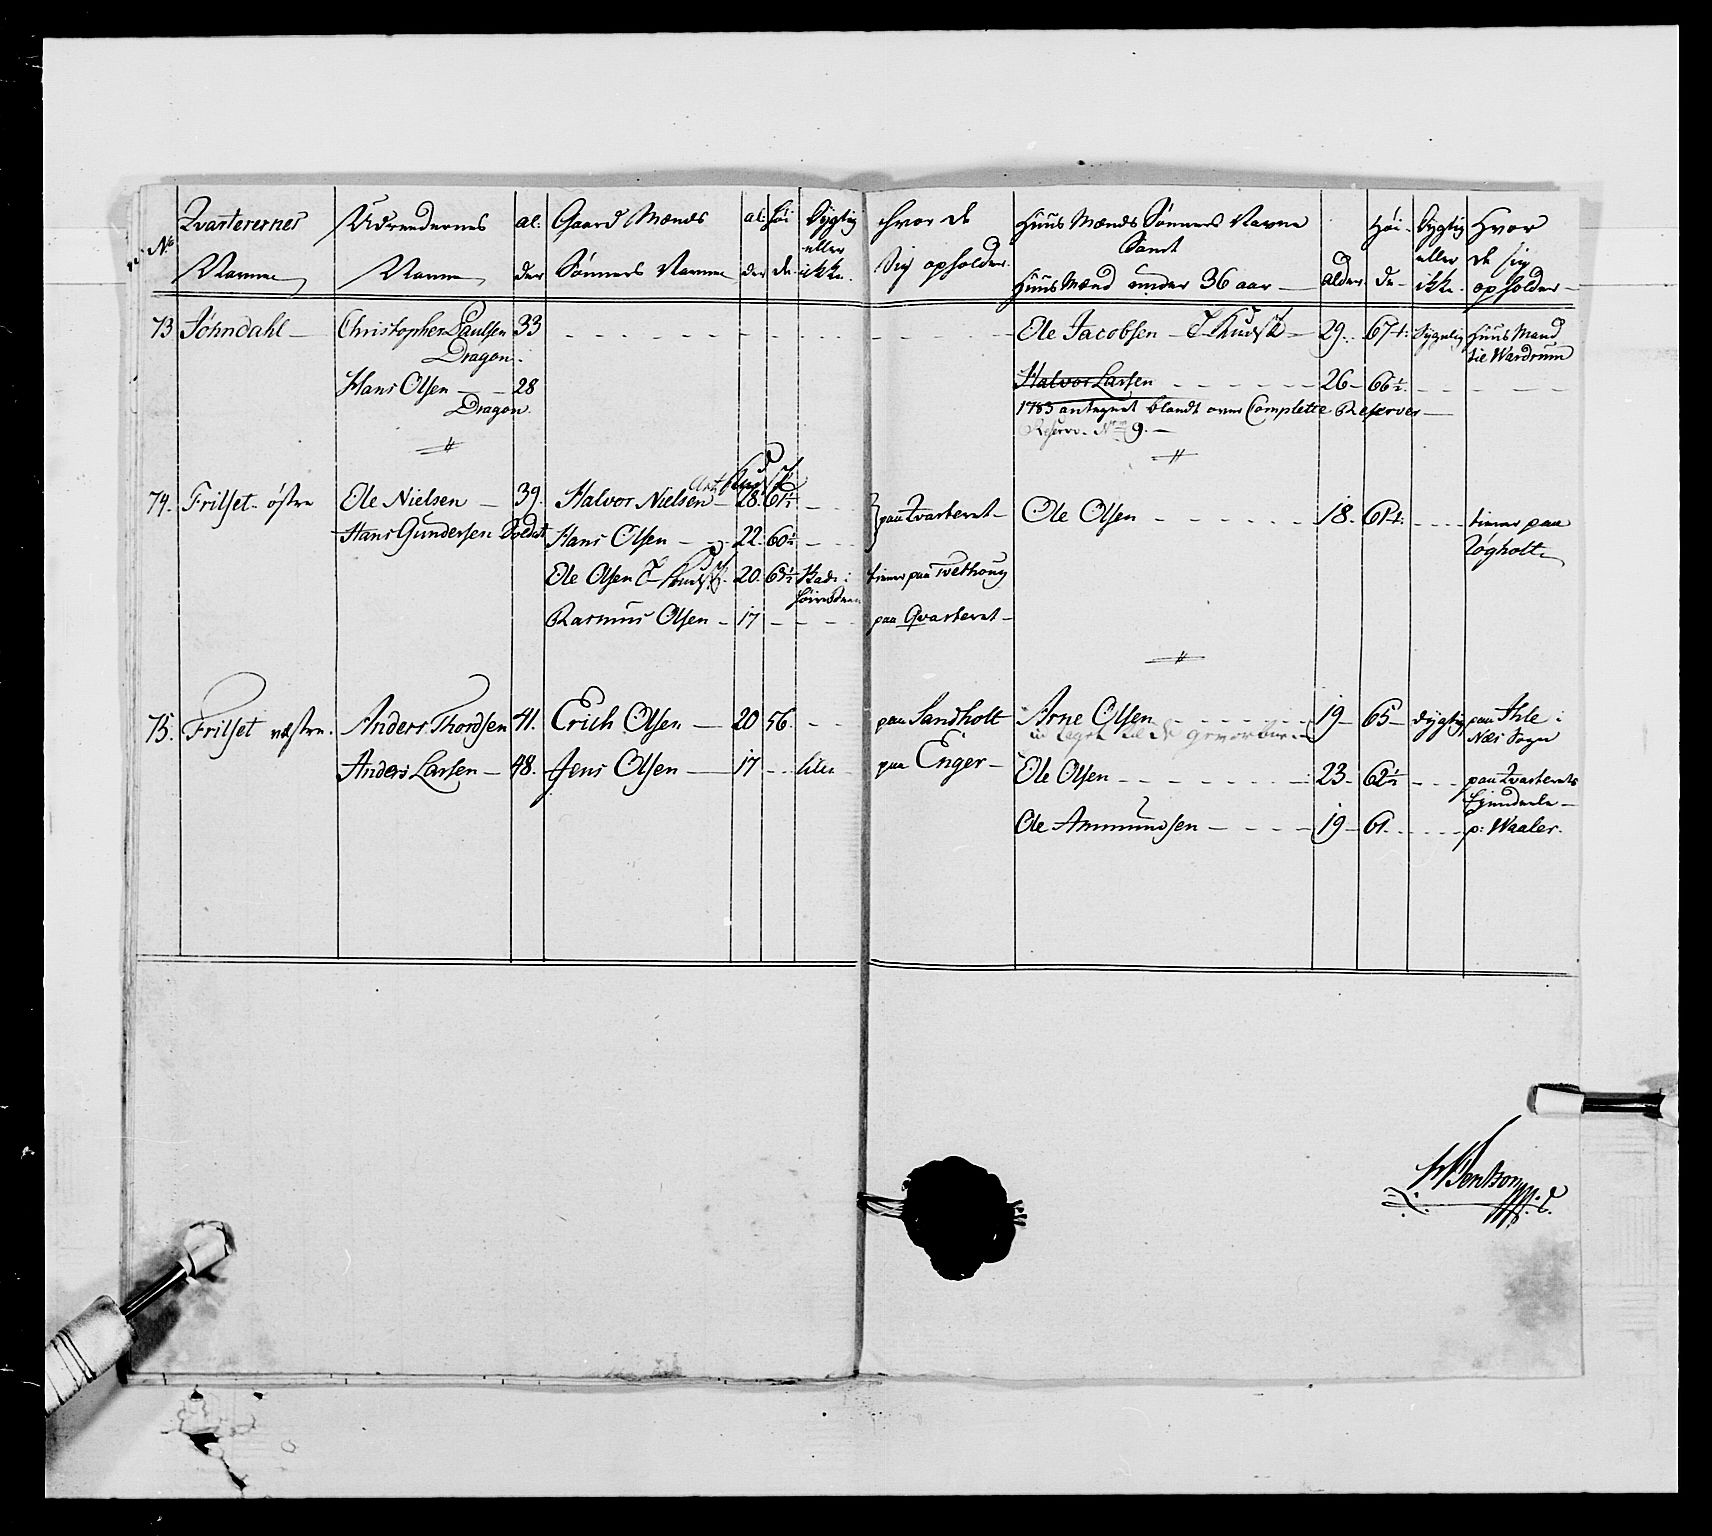 No Qvarterernes Navne | Udreedernes Navne | al: der | Gaard Mænds Sønners Navne | al: der | høi de | Dygtig eller ikke | hvor de Sig opholder | Huus Mænds Sønners Navne Samt Huus Mænd under 36 aar | alder | Høi- de | Dygtig eller ikke | Hvor de sig opholder
73 Johndahl | Christopher Paulsen 33 | Ole Jacobsen 29 | 67 | Huus Mand
Dragon | tie Wardrum
Hans Olsen 28 | Halvor Larsen 26 | 66½
Dragon | 1783 antegnet blandt over Complette Reserver
Reserv. No 9.
74. Frilset østre | Ole Nielsen 39. | Halvor Nielsen 28 | 61½ | paa Qvarteret | Ole Olsen 18 | 61½ | tiener paa
Hans Gundersen Soldat | Hans Olsen 22 | 60½
Ole Olsen 20. | 63½ | tiener paa
Rasmus Olsen 17 | paa Qvarteret
75. Frilset væstre. | Anders Thordsen 41. | Erich Olsen 20 | 56. | paa Sandholt | Arne Olsen 19 | 65 | dygtig | paa Ihle i
Næs Sogn
Anders Larsen 48. | Jens Olsen 17 | liten | paa Enger | Ole Olsen 23 | 62½ | paa Qvarterets
Ejendeele
Ole Ammundsen 19 | 61. | p: Waaler.